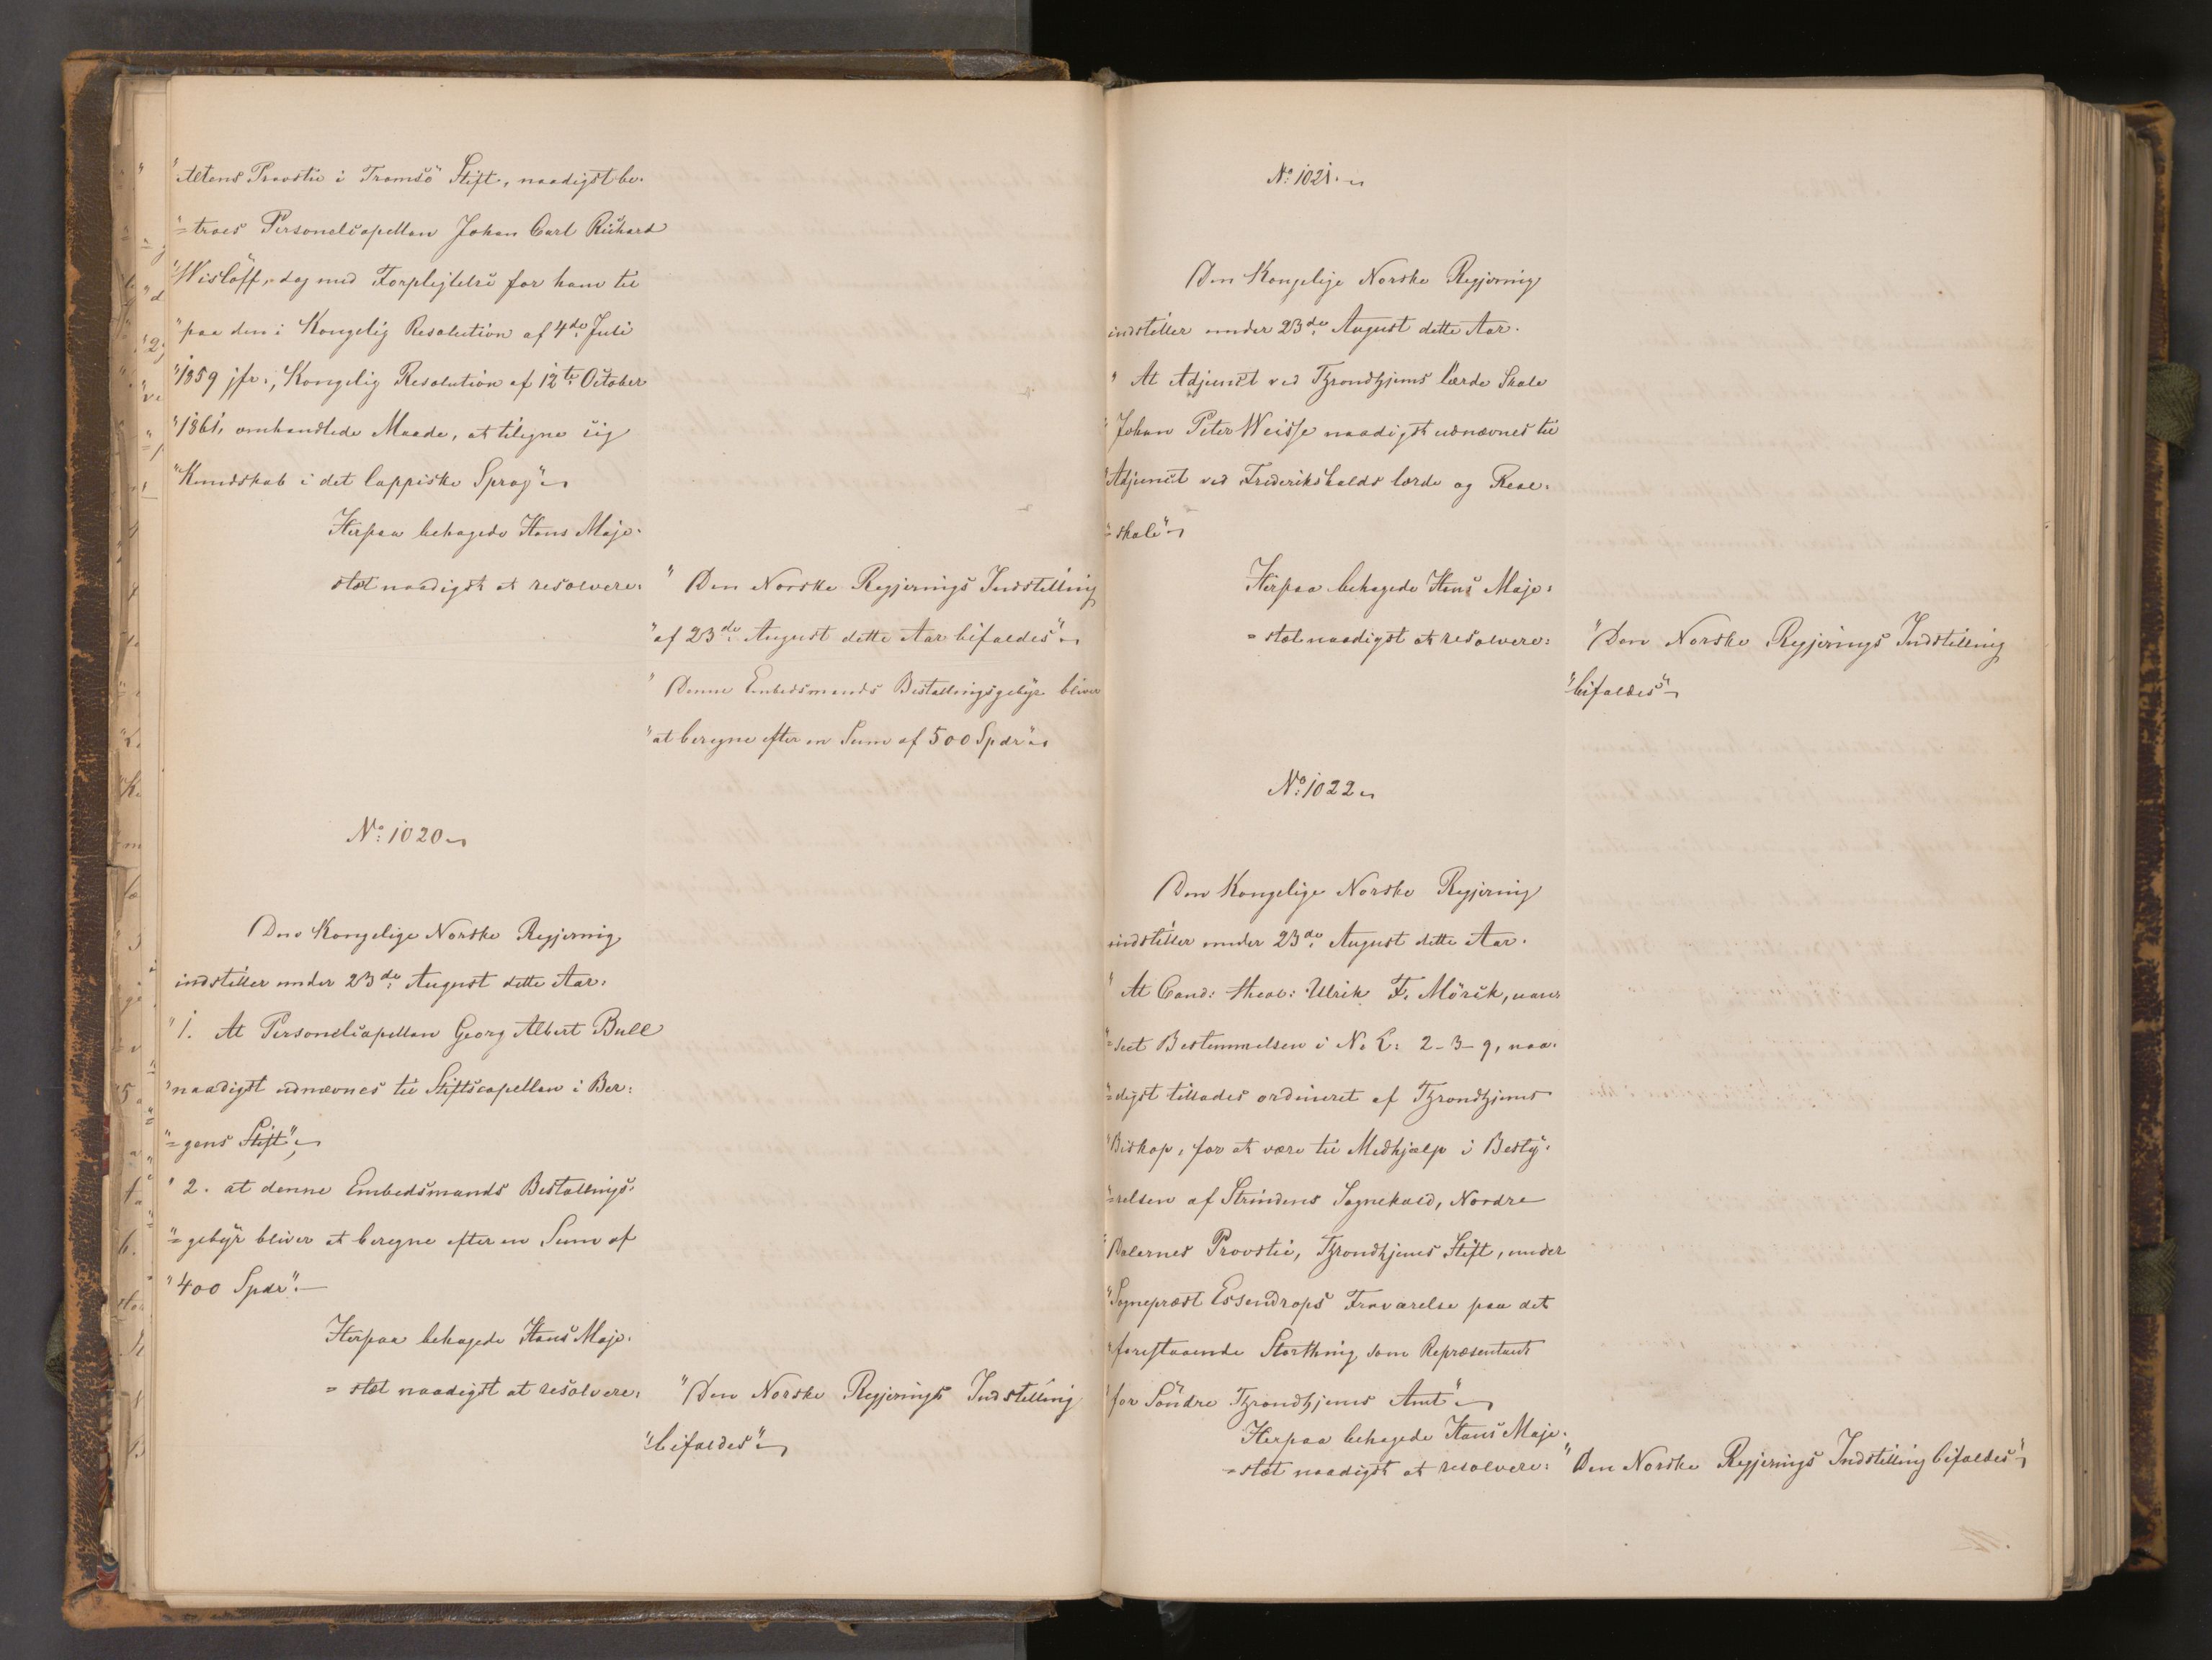 "Altens Provstie i Tromsö Stift, naadigst be-
"=troes Personelcapellan Johan Carl Richard
"Wislöff, dog med Forpligtelse for ham til
"paa den i Kongelig Resolution af 4de Juli
"1859 jfr., Kongelig Resolution af 12te October
"1861, omhandlede Maade, at tilegne sig
"Kundskab i det lappiske Sprog".
Herpaa behagede Hans Maje-
stæt naadigst at resolvere:
"Den Norske Regjerings Indstilling
"af 23de August dette Aar bifaldes".
"Denne Embedsmands Bestallingsgebyr bliver
"at beregne efter en Sum af 500 Spdr".
No: 1020.
Den Kongelige Norske Regjering
indstiller under 23de August dette Aar:
"1. At Personelcapellan Georg Albert Bull
"naadigst udnævnes til Stiftscapellan i Ber:
"=gens Stift",
"2. at denne Embedsmands Bestallings:
"=gebyr bliver at beregne efter en Sum af
"400 Spdr".
Herpaa behagede Hans Maje-
=stæt naadigst at resolvere:
"Den Norske Regjerings Indstilling
"bifaldes".
No: 1021.
Den Kongelige Norske Regjering
indstiller under 23de August dette Aar.
"At Adjunct ved Throndhjems lærde Skole
"Johan Peter Weisse naadigst udnævnes til
"Adjunct ved Frederikshalds lærde og Real-
"=skole".
Herpaa behagede Hans Maje:
=stæt naadigst at resolvere:
"Den Norske Regjerings Indstilling
"bifaldes".
No: 1022.
Den Kongelige Norske Regjering
indstiller under 23de August dette Aar.
"At Cand: theol: Ulrik F. Mörck, uan-
"=seet Bestemmelsen i N. L: 2-3-9, naa-
"=digst tillades ordineret af Throndhjems
"Biskop, for at være til Medhjælp i Besty-
"=relsen af Strindens Sognekald, Nordre
"Dalernes Provstie, Throndhjems Stift, under
"Sognepræst Essendrops Fraværelse paa det
"forestaaende Storthing som Repræsentant
"for Söndre Throndhjems Amt".
Herpaa behagede Hans Maje-
=stæt naadigst at resolvere:
"Den Norske Regjerings Indstilling bifaldes".